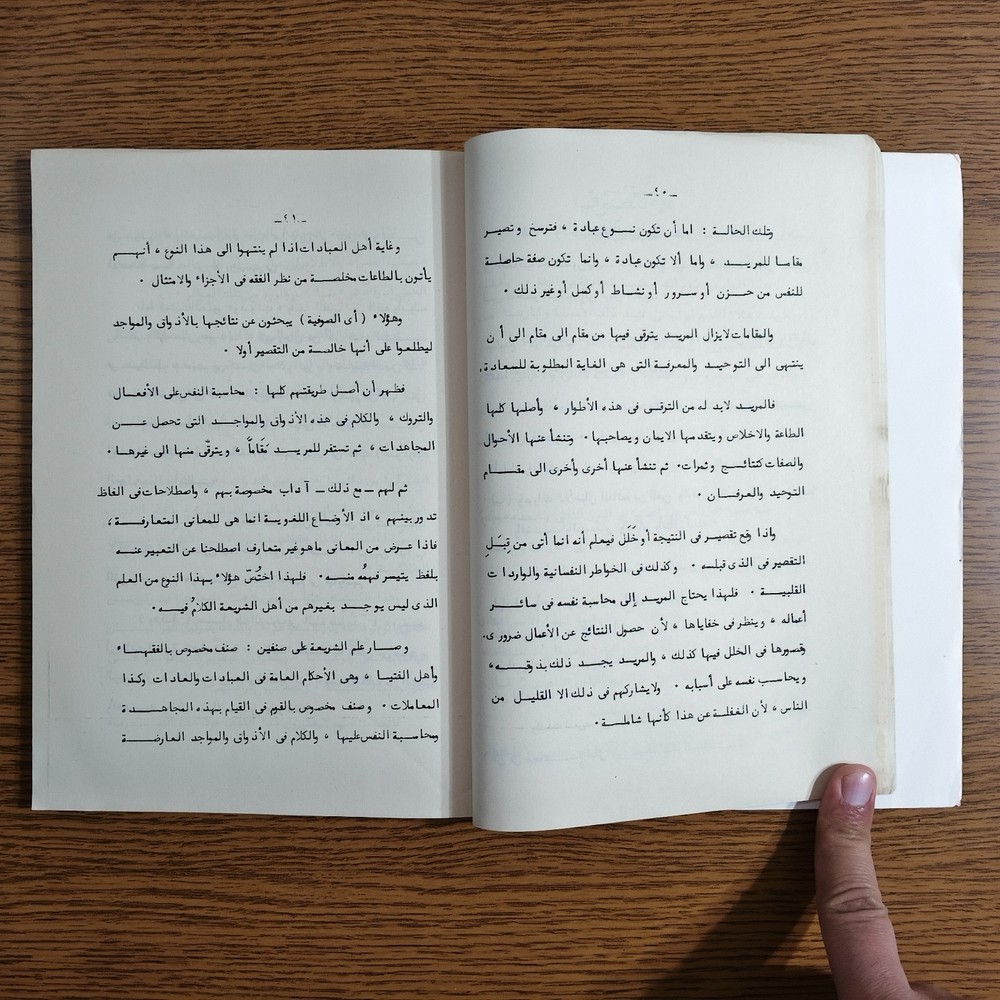 ـ٢٠ـ
وتلك الحالة : اما أن تكون نوع عبادة ، فترسخ وتصير
مقاما للمريد ، واما ألا تكون عبادة ، وانما تكون صفة حاصلة
للنفس من حزن أو سرور أو نشاط أو كسل أو غير ذلك .
والمقامات لا يزال المريد يترقى فيها من مقام الى مقام الى أن
ينتهى الى التوحيد والمعرفة التى هى الغاية المطلوبة للسعادة .
فالمريد لابد له من الترقى فى هذه الأطوار ، وأصلها كلها
الطاعة والاخلاص ويتقدمها الايمان ويصاحبها . وتنشأ عنها الأحوال
والصفات كنتائج وثمرات . ثم تنشأ عنها أخرى وأخرى الى مقام
التوحيد والعرفان .
واذا وقع تقصير فى النتيجة أو خَلَل فيعلم أنه انما أتى من قِبَلِ
التقصير فى الذى قبله . وكذلك فى الخواطر النفسانية والواردات
القلبية . فلهذا يحتاج المريد إلى محاسبة نفسه فى سائر
أعماله ، وينظر فى خفاياها ، لأن حصول النتائج عن الأعمال ضرورى .
وقصورها فى الخلل فيها كذلك ، والمريد يجد ذلك بذوقه ،
ويحاسب نفسه على أسبابه . ولا يشاركهم فى ذلك الا القليل من
الناس ، لأن الغفلة عن هذا كأنها شاملة .
ـ٢١ـ
وغاية أهل العبادات اذا لم ينتهوا الى هذا النوع ، أنهم
يأتون بالطاعات مخلصة من نظر الفقه فى الأجزاء والامتثال .
وهؤلاء ( أى الصوفية ) يبحثون عن نتائجها بالأذواق والمواجد
ليطلعوا على أنها خالصة من التقصير أولا .
فظهر أن أصل طريقتهم كلها : محاسبة النفس على الأفعال
والتروك ، والكلام فى هذه الأذواق والمواجد التى تحصل عن
المجاهدات ، ثم تستفر للمريد مَقَاماً ، ويترقّى منها الى غيرها .
ثم لهم ــ مع ذلك ــ آداب مخصوصة بهم ، واصطلاحات فى الفاظ
تدور بينهم ، اذ الأوضاع اللغوية انما هى للمعانى المتعارفة ،
فاذا عرض من المعانى ماهو غير متعارف اصطلحنا عن التعبير عنه
بلفظ يتيسر فهمُه منه . فلهذا اختُصّ هؤلاء بهذا النوع من العلم
الذى ليس يوجد بغيرهم من أهل الشريعة الكلامُ فيه .
وصار علم الشريعة على صنفين : صنف مخصوص بالفقهاء
وأهل الفتيا ، وهى الأحكام العامة فى العبادات والعادات وكذا
المعاملات . وصنف مخصوص بالقوم فى القيام بهذه المجاهدة
ومحاسبة النفس عليها ، والكلام فى الأذواق والمواجد العارضة